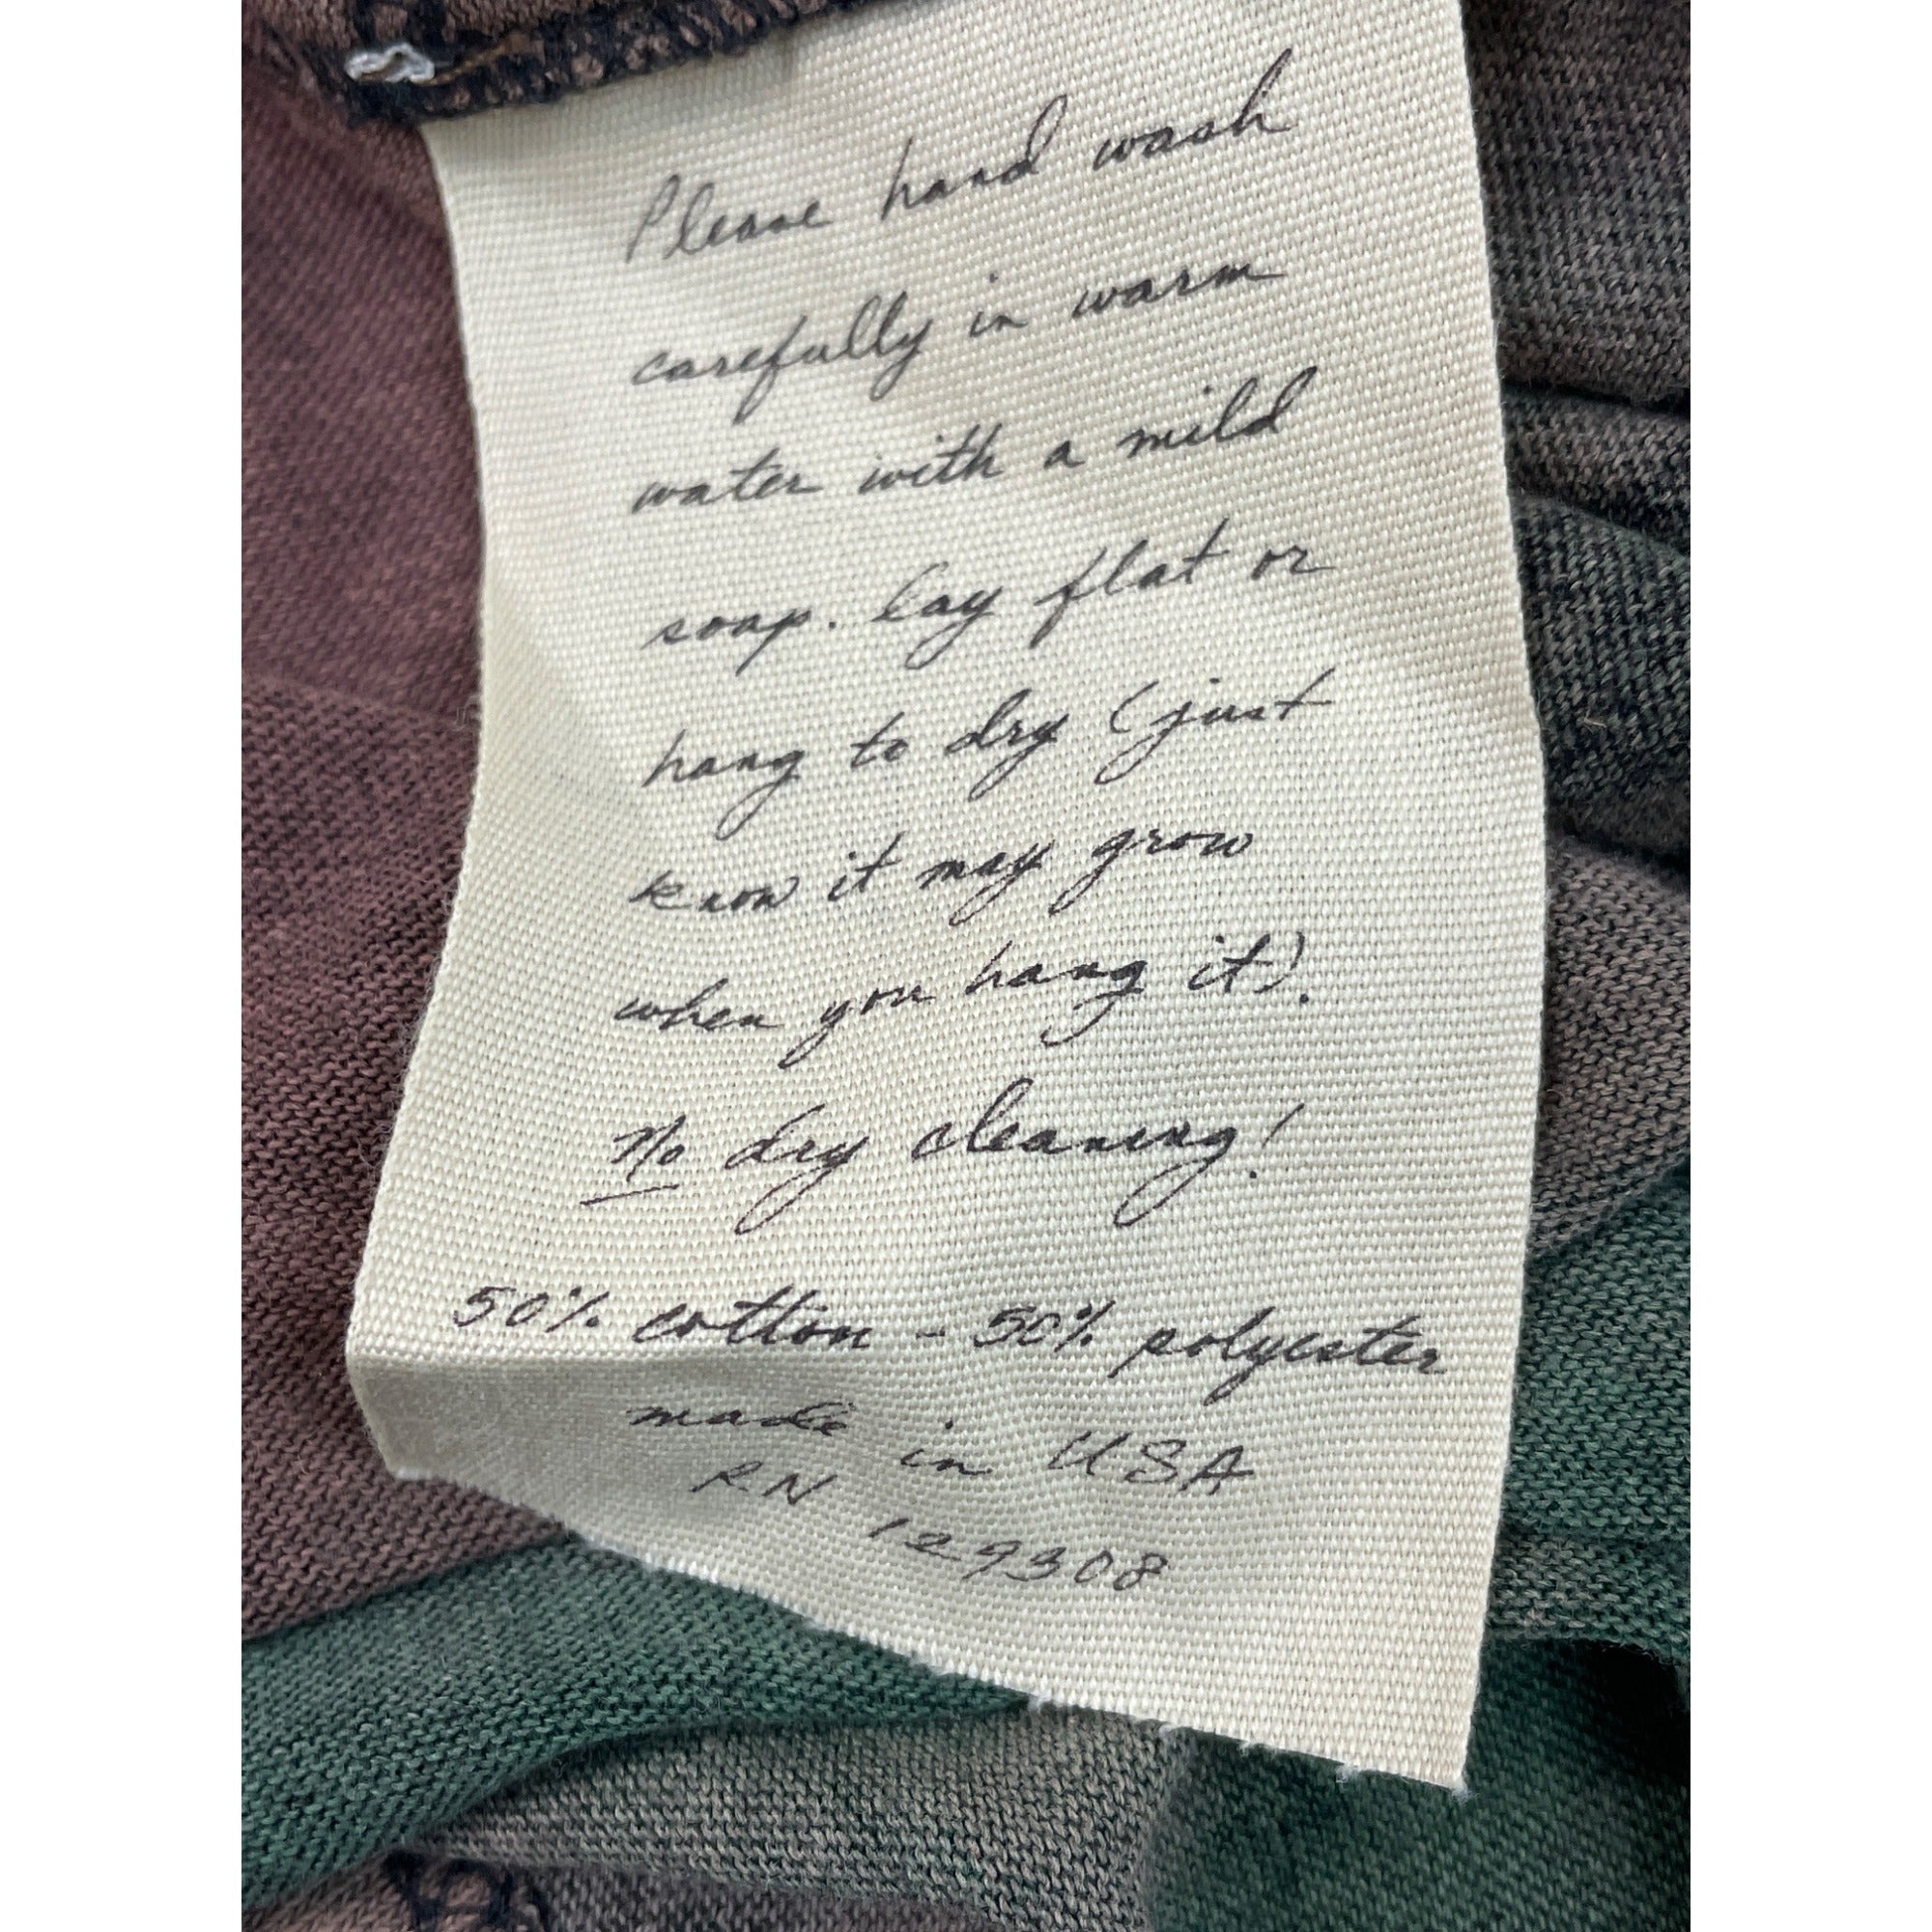 Please hand wash
carefully in warm
water with a mild
soap. Lay flat or
hang to dry (just
know it may grow
when you hang it).
No dry cleaning!
50% cotton - 50% polyester
made in USA
RN 129308